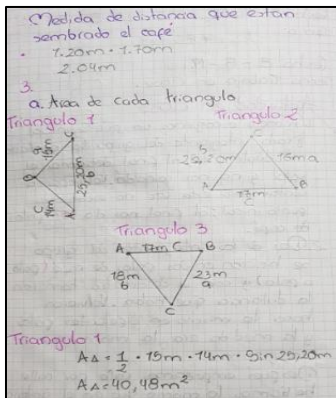 Medida de distancia que estan
sembrado el café
. 1.20m . 1.70m
2.04m
3.
a. Area de cada triangulo
Triangulo 1
Triangulo 2
C
B
A
15m
14m
25,20m
b
C
25,20m
15m a
A
B
Triangulo 3
A 17m C B
18m
b
23m
a
C
Triangulo 1
A△ = 1/2 . 15m . 14m . Sin 25,20m
A△ = 40,48m²